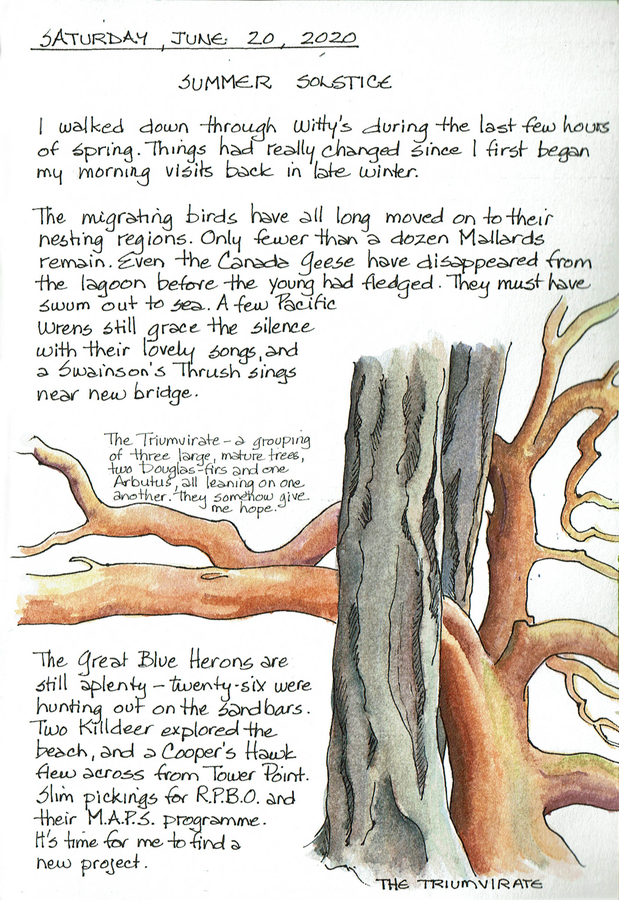 SATURDAY, JUNE 20, 2020
SUMMER SOLSTICE
I walked down through Witty's during the last few hours
of spring. Things had really changed since I first began
my morning visits back in late winter.
The migrating birds have all long moved on to their
nesting regions. Only fewer than a dozen Mallards
remain. Even the Canada Geese have disappeared from
the lagoon before the young had fledged. They must have
swum out to sea. A few Pacific
Wrens still grace the silence
with their lovely songs, and
a Swainson's Thrush sings
near new bridge.
The Triumvirate - a grouping
of three large, mature trees,
two Douglas-firs and one
Arbutus, all leaning on one
another. They somehow give
me hope.
The Great Blue Herons are
still aplenty - twenty-six were
hunting out on the sandbars.
Two Killdeer explored the
beach, and a Cooper's Hawk
flew across from Tower Point.
Slim pickings for R.P.B.O. and
their M.A.P.S. programme.
It's time for me to find a
new project.
THE TRIUMVIRATE